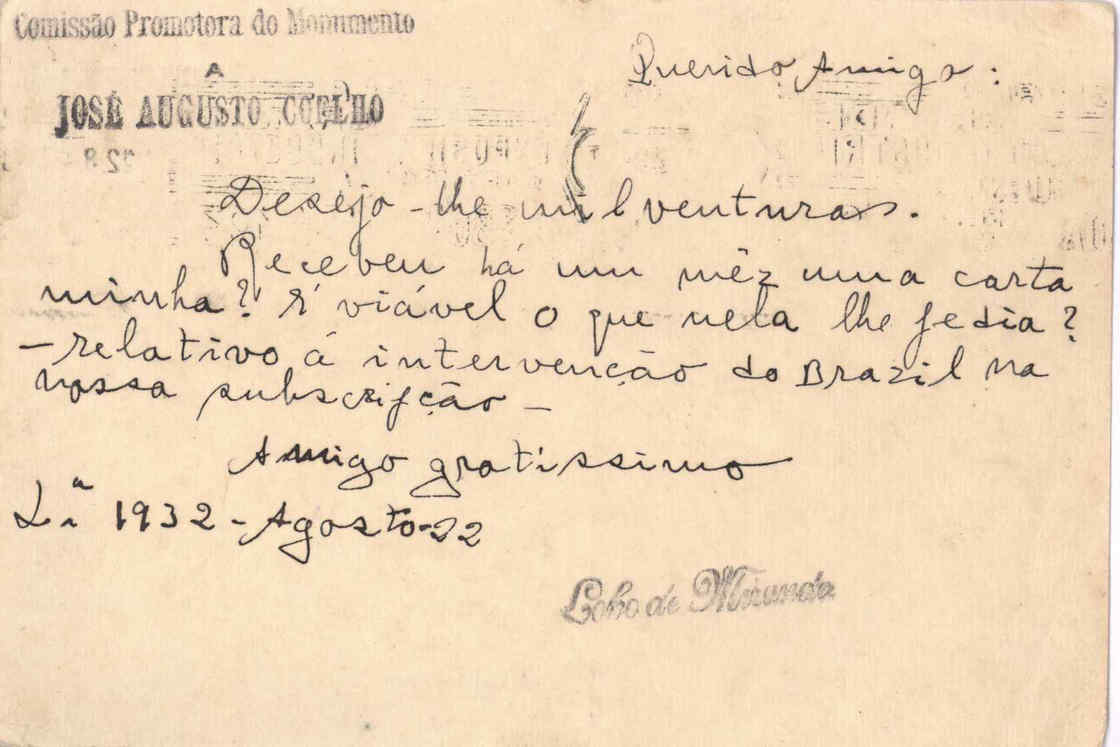 Comissão Promotora do Monumento
A
JOSÉ AUGUSTO COELHO
Querido Amigo:
Desejo-lhe mil venturas.
Recebeu há um mêz uma carta
minha? É viável o que nela lhe pedia?
-relativo á intervenção do Brazil na
nossa subscripção-
Amigo gratissimo
Lxª 1932-Agosto-22
Lobo de Miranda